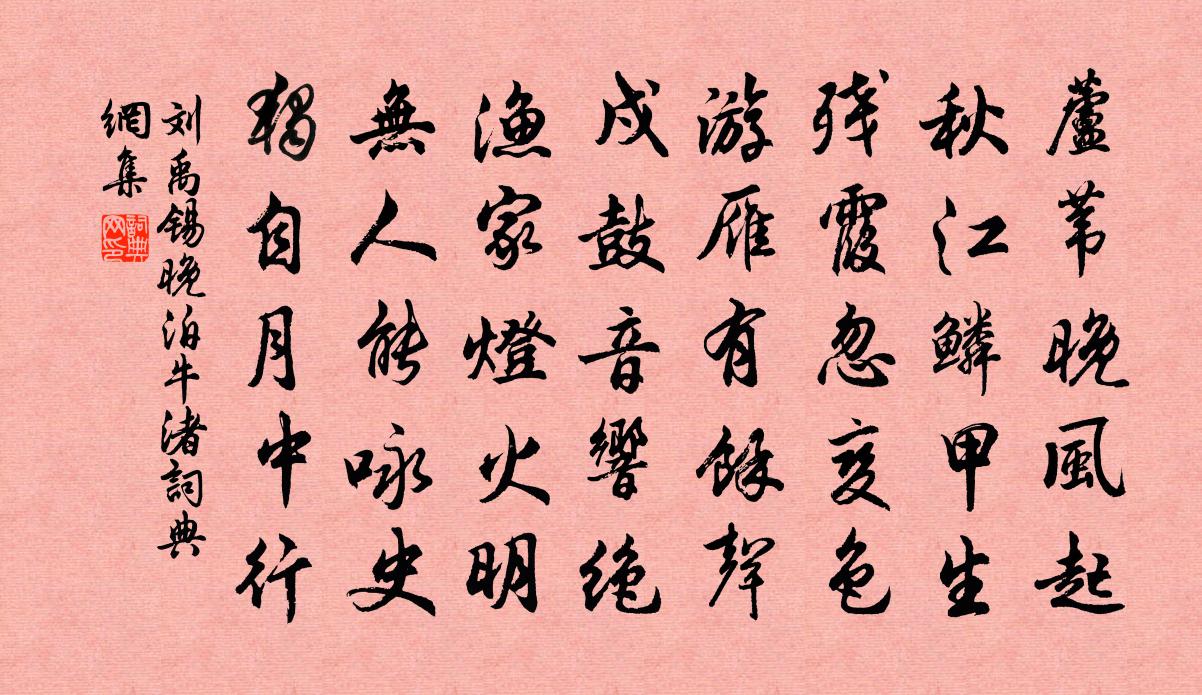 蘆苇晚風起
秋江鱗甲生
残霞忽变色
游雁有餘聲
戍鼓音響绝
漁家燈火明
無人能咏史
獨自月中行
刘禹錫晚泊牛渚詞典
網集
詞典
网印